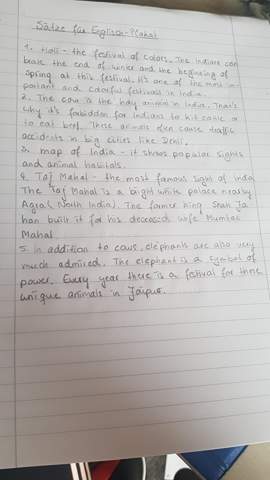 Sätze für Englisch-Plakat
1. Holi - the festival of colors. The Indians cele
brate the end of winter and the beginning of
spring at this festival. It's one of the most im
portant and colorful festivals in India.
2. The cow is the holy animal in India. That's
why it's forbidden for Indians to hit cattle or
to eat beef. These animals often cause traffic
accidents in big cities like Delhi.
3. map of India - it shows popular sights
and animal habitats.
4. Taj Mahal - the most famous sight of India
The Taj Mahal is a bight white palace nearby
Agra (North India). The former king Shah Ja
han built it for his deceased wife Mumtas
Mahal
5. In addition to cows, elephants are also very
much admired. The elephant is a symbol of
power. Every year there is a festival for these
unique animals in Jaipur.